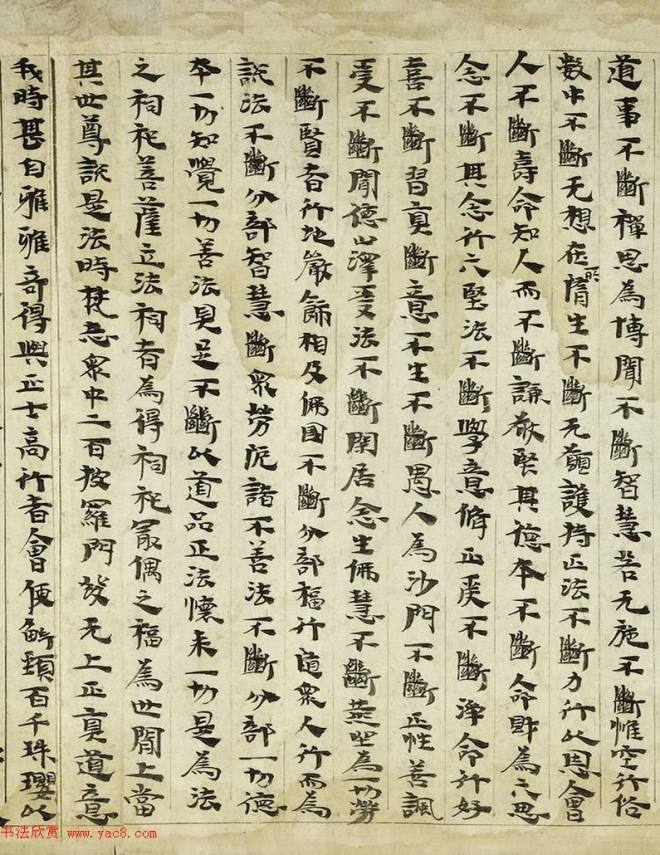 道事不斷禪思為博聞不斷智慧若无施不斷惟空行俗
數中不斷无想在所墮生不斷无願護持正法不斷力行以恩會
人不斷壽命知人而不斷謙敬堅其德本不斷命財為六思
念不斷其念行六堅法不斷學意脩正受不斷淨命行好
喜不斷習真斷意不生不斷愚人為沙門不斷正性善諷
受不斷聞德山澤受法不斷閑居念生佛慧不斷燕坐為一切勞
不斷賢者行地嚴飾相及佛國不斷分部福行道衆人行而為
說法不斷分部智慧斷衆勞院諸不善法不斷分部一切德
本一切知覺一切善法具足不斷此道品正法懷来一切是為法
之祠祀菩薩立法祠者為得祠祀最偶之福為世間上當
其世尊說是法時梵志衆中二百婆羅門發无上正真道意
我時甚自雅雅奇得與正士高行者會便解頸百千珠瓔以
书法欣赏 www.yac8.com